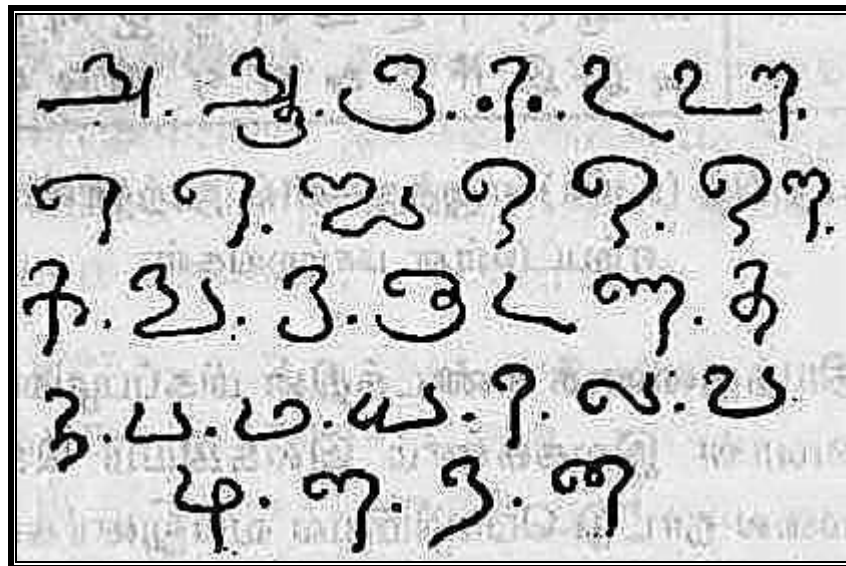 அ. ஆ. இ. ஈ. உ ஊ.
எ ஏ. ஐ ஒ ஓ. ஔ.
க. ங. ச. ஞ ட ண. த
ந. ப. ம. ய. ர. ல. வ
ழ. ள. ற. ன